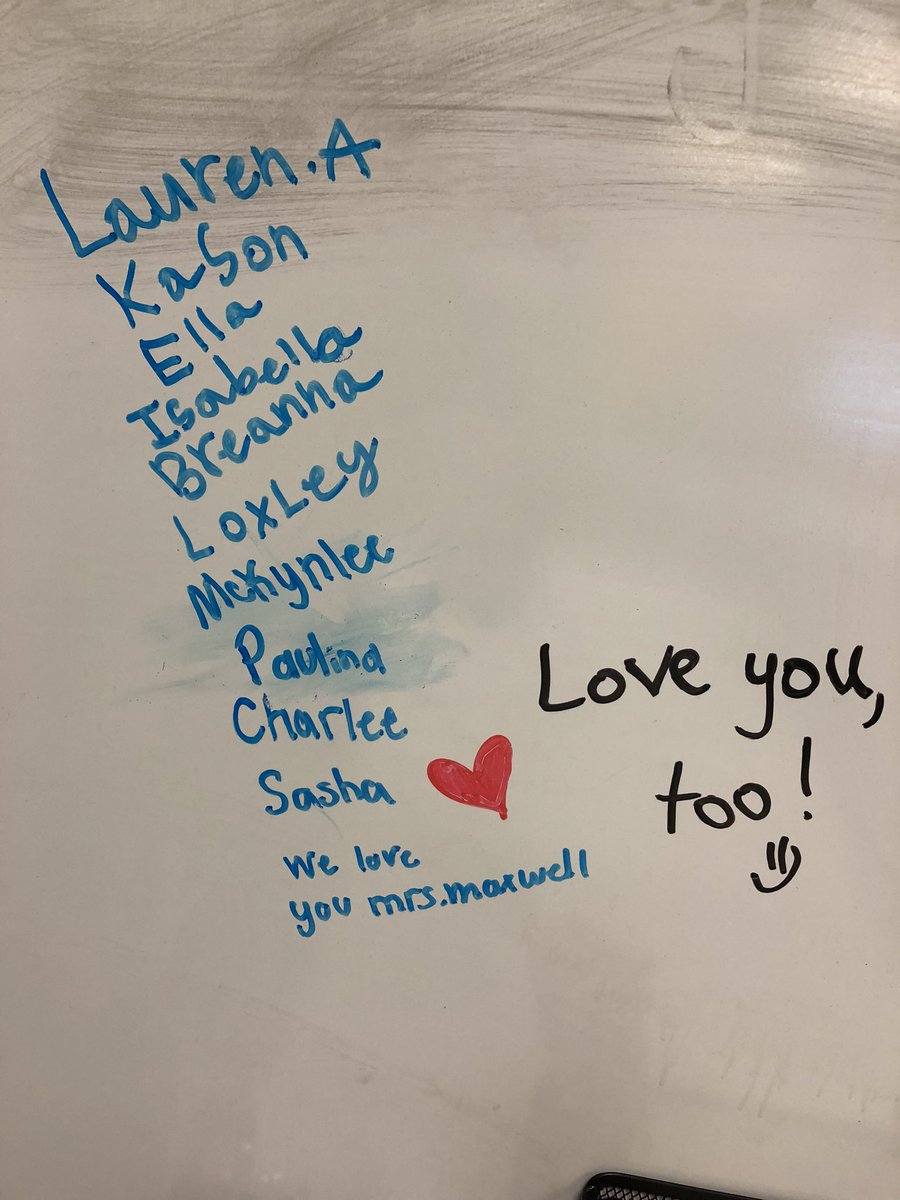 Lauren.A
Kason
Ella
Isabella
Breanna
Loxley
McKynlee
Paulina
Charlee
Sasha
we love
you mrs.maxwell
Love you,
too!